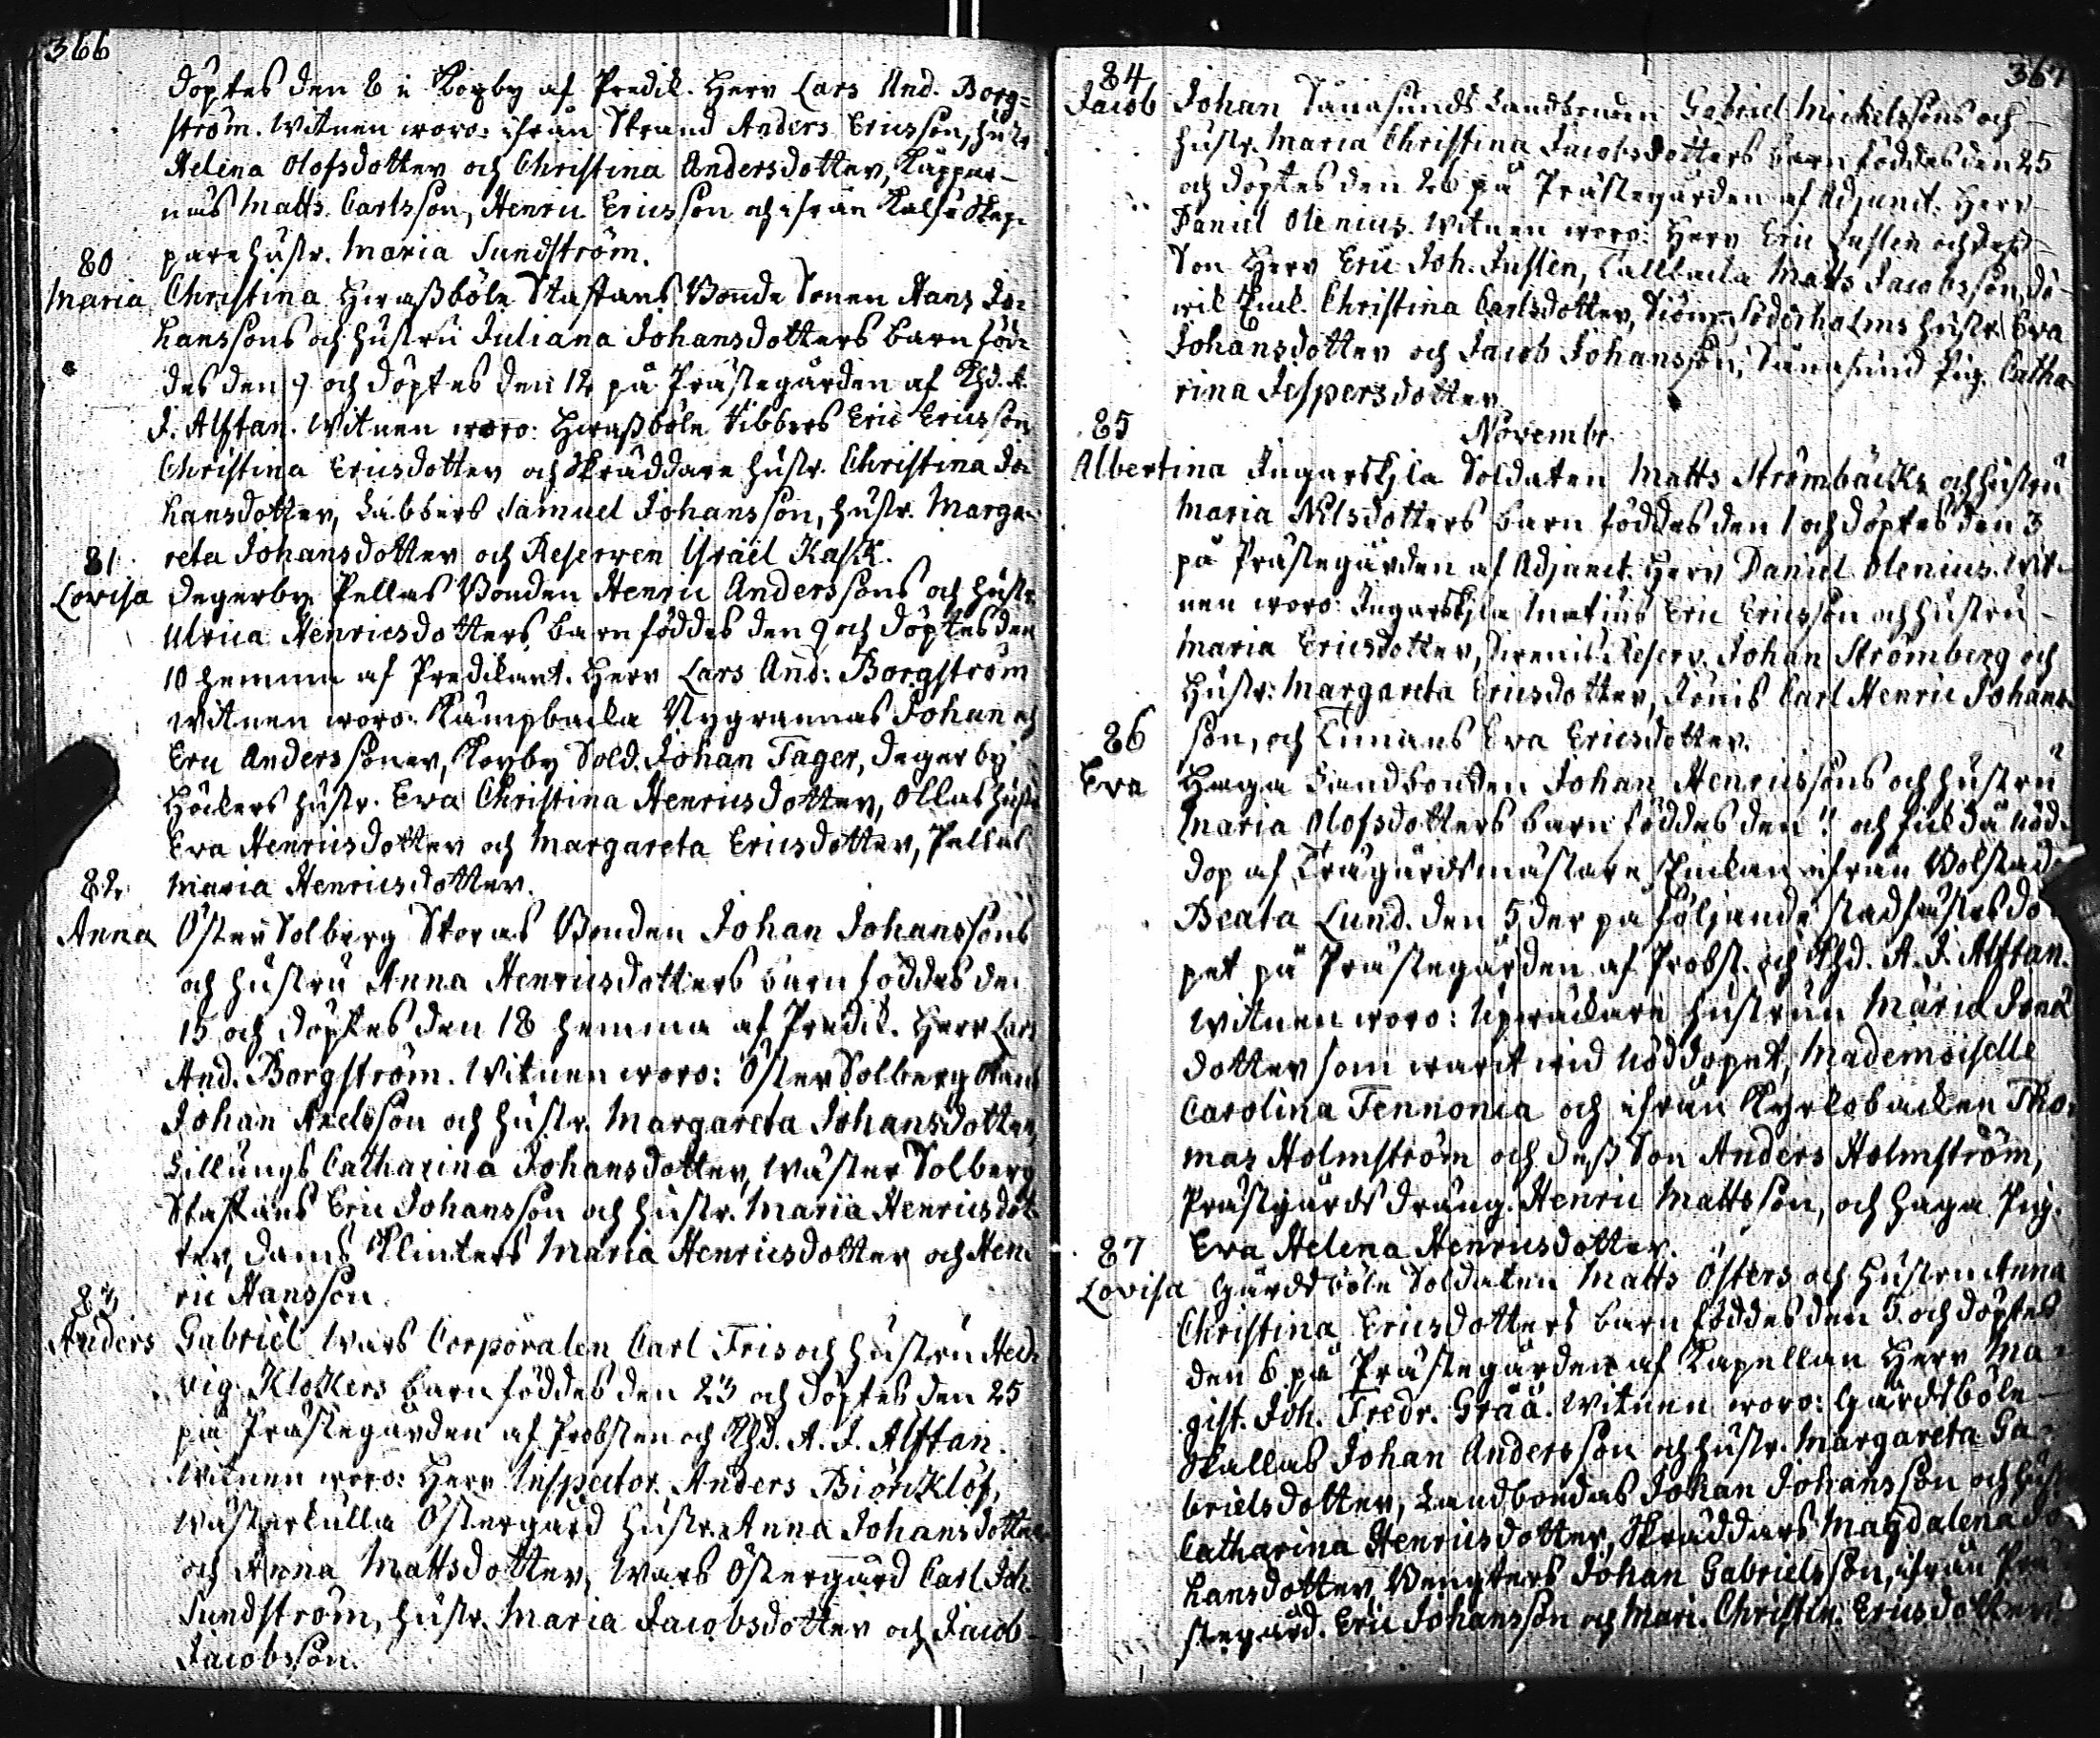 366
döptes den 8 i Kopby af Predik. Herr Lars And. Borg=
ström. Witnen woro: ifrån Strand Anders Ericsson, hustr
Helena Olofsdotter och Christina Andersdotter, Kappar-
näs Matts Carlsson, Henric Ericsson och ifrån
pare hustr. Maria Sundström.
80
Maria Christina Hwaßböle Staffans Bonde Sonen Hans Jo=
hanssons och hustru Juliana Johansdotters barn föd=
des den 9 och döptes den 12 på Prästegården af Khd. A.
J. Alftan. Witnen woro: Hwaßböle Kibbers Eric Ericsson
Christina Ericsdotter och Skräddare hustr. Christina Jo=
hansdotter, Labbers Samuel Johansson, hustr. Marga=
reta Johansdotter och Reserven Israel Kask.
81
Lovisa Degerby Pellas Bonden Henric Anderssons och hustr
Ulrica Henricsdotters barn föddes den 9 och döptes den
10 hemma af Predikant. Herr Lars And: Borgström
Witnen woro: Kämpbacka Nygrannas Johan och
Eric Anderssöner, Kopby Sold. Johan Tager, Degerby
Höckers hustr. Eva Christina Henricsdotter, Ollas hustr
Eva Henricsdotter och Margareta Ericsdotter, Pellas
Maria Henricsdotter.
82
Anna Öster Solberg Storas Bonden Johan Johanssons
och hustru Anna Henricsdotters barn föddes den
15 och döptes den 18 hemma af Predik. Herr Lars
And. Borgström. Witnen woro: Öster Solberg
Johan Axelsson och hustr. Margareta Johansdotter,
Lillungs Catharina Johansdotter, Wäster Solberg
Staffans Eric Johansson och hustr. Maria Henricsdot=
ter, Dams Klinkers Maria Henricsdotter och Hen=
ric Hansson
83
Anders Gabriel Wars Corporalen Carl Fris och hustru Hed=
vig Klokers barn föddes den 23 och döptes den 25
på Prästegården af Probsten och Khd. A. J. Alftan.
Witnen woro: Herr Inspector Anders Biörcklöf,
Wästerkulla Östergård hustr. Anna Johansdotter
och Anna Mattsdotter, Wars Östergård Carl Joh.
Sundström, hustr. Maria Jacobsdotter och Jacob
Jacobsson.
367
84
Jacob Johan Sänasunds Landbonden Gabriel Mickelssons och
hustr. Maria Christina Jacobsdotters barn föddes den 25
och döptes den 26 på Prästegården af Adjunct. Herr
Daniel Olenius. Witnen woro: Herr Eric Juslen och dess
Son Herr Eric Joh. Juslen, Tallbacka Matts Jacobsson,
Christina Carlsdotter, Söderholms hustr. Eva
Johansdotter och Jacob Johansson, Sänasund Pig. Catha=
rina Jespersdotter.
85
Novembr.
Albertina Ingarskila Soldaten Matts Strömbäcks och hustru
Maria Nilsdotters barn föddes den 1 och döptes den 3
på Prästegården af Adjunct. Herr Daniel Olenius. Wit=
nen woro: Ingarskila Eric Ericsson och hustru
Maria Ericsdotter, Reserv. Johan Strömberg och
hustr: Margareta Ericsdotter, Carl Henric Johans=
86
son, och Eva Ericsdotter.
Eva Haga Landbonden Johan Henricssons och hustru
Maria Olofsdotters barn föddes den och fick då nöd=
dop af Trägårdsmästare ifrån Bolstad
Beata Lund. den 5 der på följande stadfästes do=
pet på Prästegården af Probst. och Khd. A. J. Alftan.
Witnen woro: hustrun Maria
dotter som warit wid nöddopet, Mademoiselle
Carolina Fennonia och ifrån Kyrkobacken Tho=
mas Holmström och dess Son Anders Holmström,
Prästgårds dräng. Henric Mattsson, och Haga Pig.
87
Eva Helena Henricsdotter.
Lovisa Gårdsböle Soldaten Matts Östers och hustru Anna
Christina Ericsdotters barn föddes den 5 och döptes
den 6 på Prästegården af Kapellan Herr Ma=
gist. Joh. Fredr. Gråå. Witnen woro: Gårdsböle
Skallas Johan Andersson och hustr. Margareta Ga=
brielsdotter, Landbondas Johan Johansson och hustr
Catharina Henricsdotter, Skräddars Magdalena Jo=
hansdotter, Johan Gabrielsson, ifrån Prä=
stegård. Eric Johansson och Mari. Christin. Ericsdotter